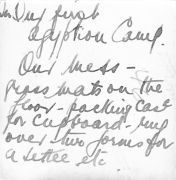 Our first
Egyption Camp.
Our mess -
grass mats on the
floor - packing case
for cupboard - rug
over two forms for
a settee etc